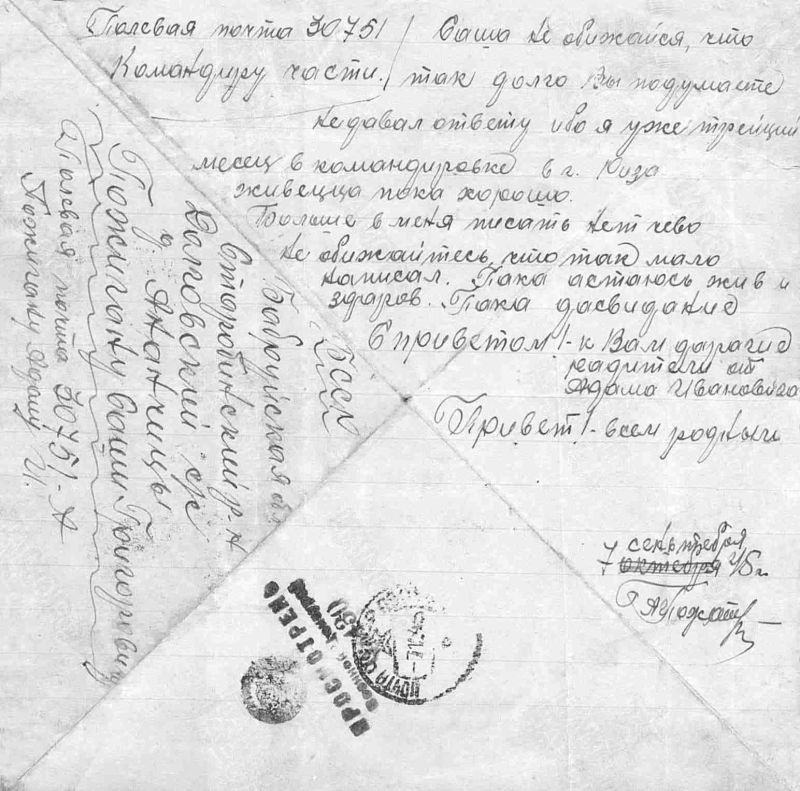 Полевая почта 30751
Командиру части.
Саша не обижайся, что
так долго Вы подумаете
не давал ответу ибо я уже трейций
месец в командировке в г. Рига
живецца пока хорошо.
Больше в меня писать нет чево
не обижайтесь, что так мало
написал. Пака астаюсь жив и
здаров. Пака дасвидание
С приветом! - к Вам дарагие
радители от
Адама Ивановича
Привет! - всем родным
7 сентебря
октебря 45 г.
БССР
Бабруйская об
Старобинский р-н
Даповский с/с
д. Аханчицы
Пожиганку Ивану Григоревичу
Полевая почта 30751-А
Пожиганку Адаму И.
ПРОСМОТРЕНО
Военной Цензурой
ПОЧТА